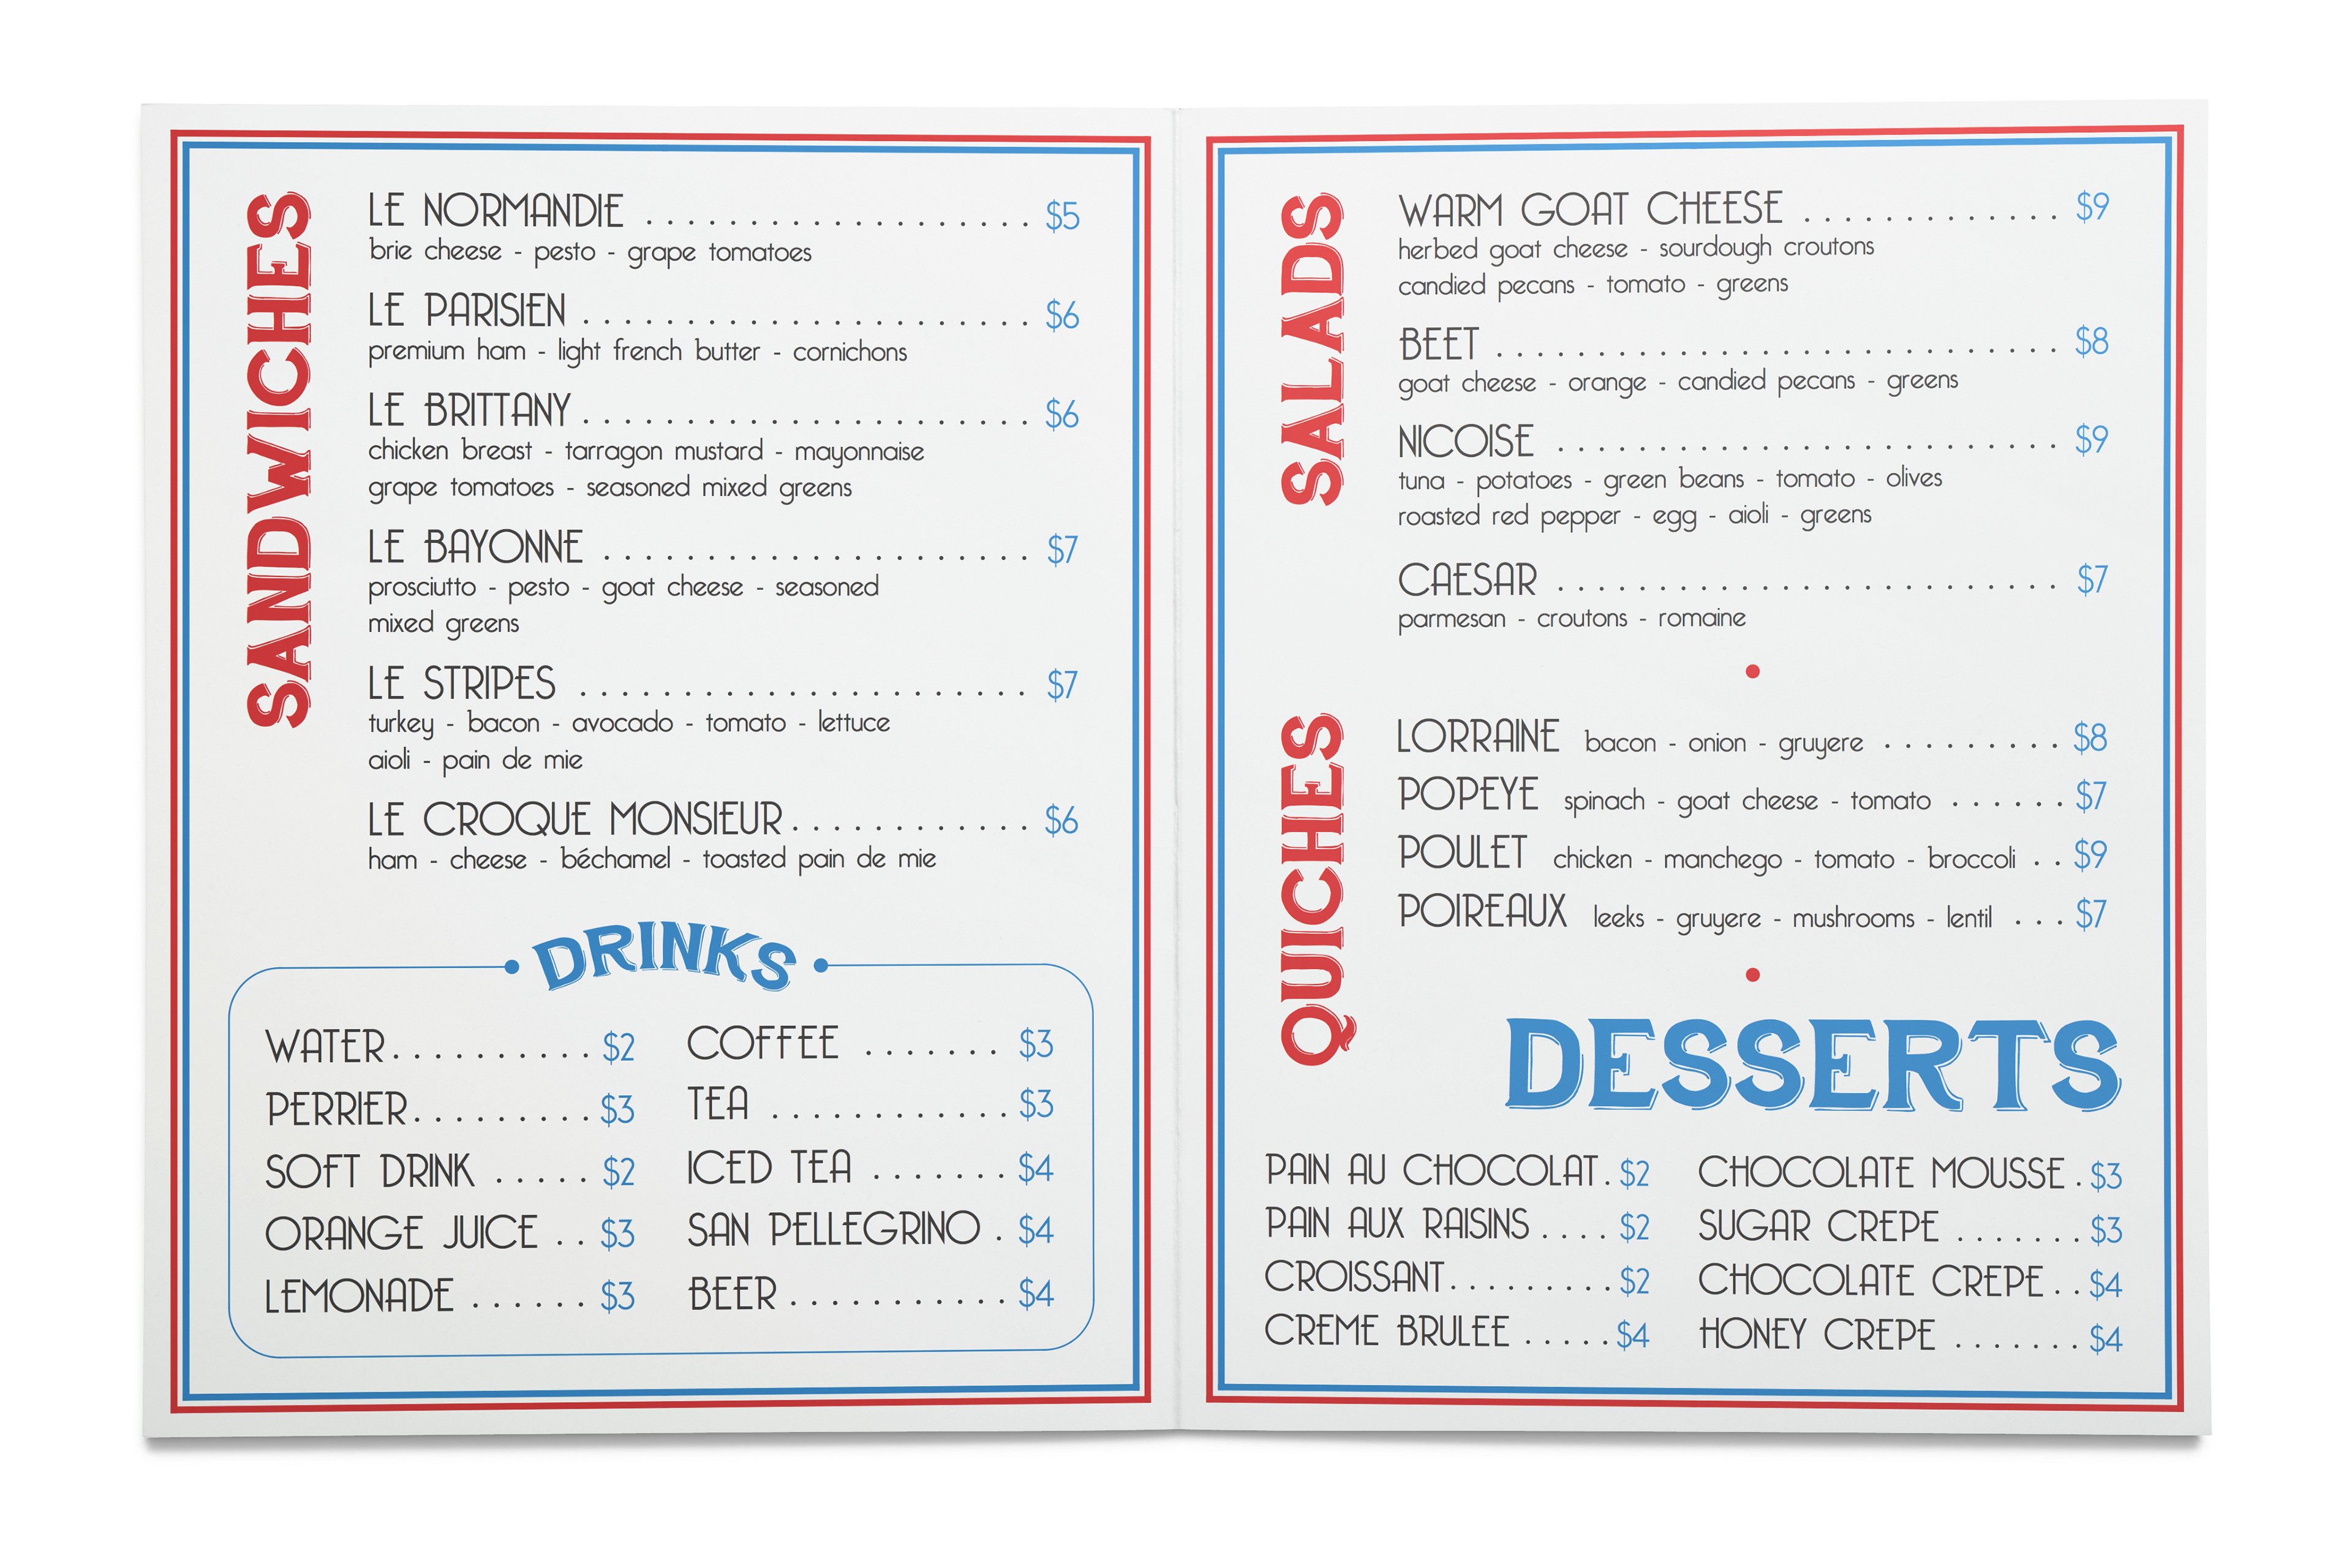 SANDWICHES
LE NORMANDIE . . . . . . . . . . . . . . . . . . . $5
brie cheese - pesto - grape tomatoes
LE PARISIEN . . . . . . . . . . . . . . . . . . . . . . $6
premium ham - light french butter - cornichons
LE BRITTANY . . . . . . . . . . . . . . . . . . . . . . $6
chicken breast - tarragon mustard - mayonnaise
grape tomatoes - seasoned mixed greens
LE BAYONNE . . . . . . . . . . . . . . . . . . . . . $7
prosciutto - pesto - goat cheese - seasoned
mixed greens
LE STRIPES . . . . . . . . . . . . . . . . . . . . . . $7
turkey - bacon - avocado - tomato - lettuce
aioli - pain de mie
LE CROQUE MONSIEUR . . . . . . . . . . . . $6
ham - cheese - béchamel - toasted pain de mie
DRINKS
WATER . . . . . . . . . . $2
PERRIER . . . . . . . . . $3
SOFT DRINK . . . . . $2
ORANGE JUICE . . $3
LEMONADE . . . . . . $3
COFFEE . . . . . . . $3
TEA . . . . . . . . . . . . $3
ICED TEA . . . . . . . $4
SAN PELLEGRINO . $4
BEER . . . . . . . . . . . $4
SALADS
WARM GOAT CHEESE . . . . . . . . . . . . . $9
herbed goat cheese - sourdough croutons
candied pecans - tomato - greens
BEET . . . . . . . . . . . . . . . . . . . . . . . . . . . $8
goat cheese - orange - candied pecans - greens
NICOISE . . . . . . . . . . . . . . . . . . . . . . . . $9
tuna - potatoes - green beans - tomato - olives
roasted red pepper - egg - aioli - greens
CAESAR . . . . . . . . . . . . . . . . . . . . . . . . $7
parmesan - croutons - romaine
QUICHES
LORRAINE bacon - onion - gruyere . . . . . . . . . $8
POPEYE spinach - goat cheese - tomato . . . . . . $7
POULET chicken - manchego - tomato - broccoli . . $9
POIREAUX leeks - gruyere - mushrooms - lentil . . . $7
DESSERTS
PAIN AU CHOCOLAT . $2
PAIN AUX RAISINS . . . . $2
CROISSANT . . . . . . . . $2
CREME BRULEE . . . . . $4
CHOCOLATE MOUSSE . $3
SUGAR CREPE . . . . . . . $3
CHOCOLATE CREPE . . $4
HONEY CREPE . . . . . . . $4